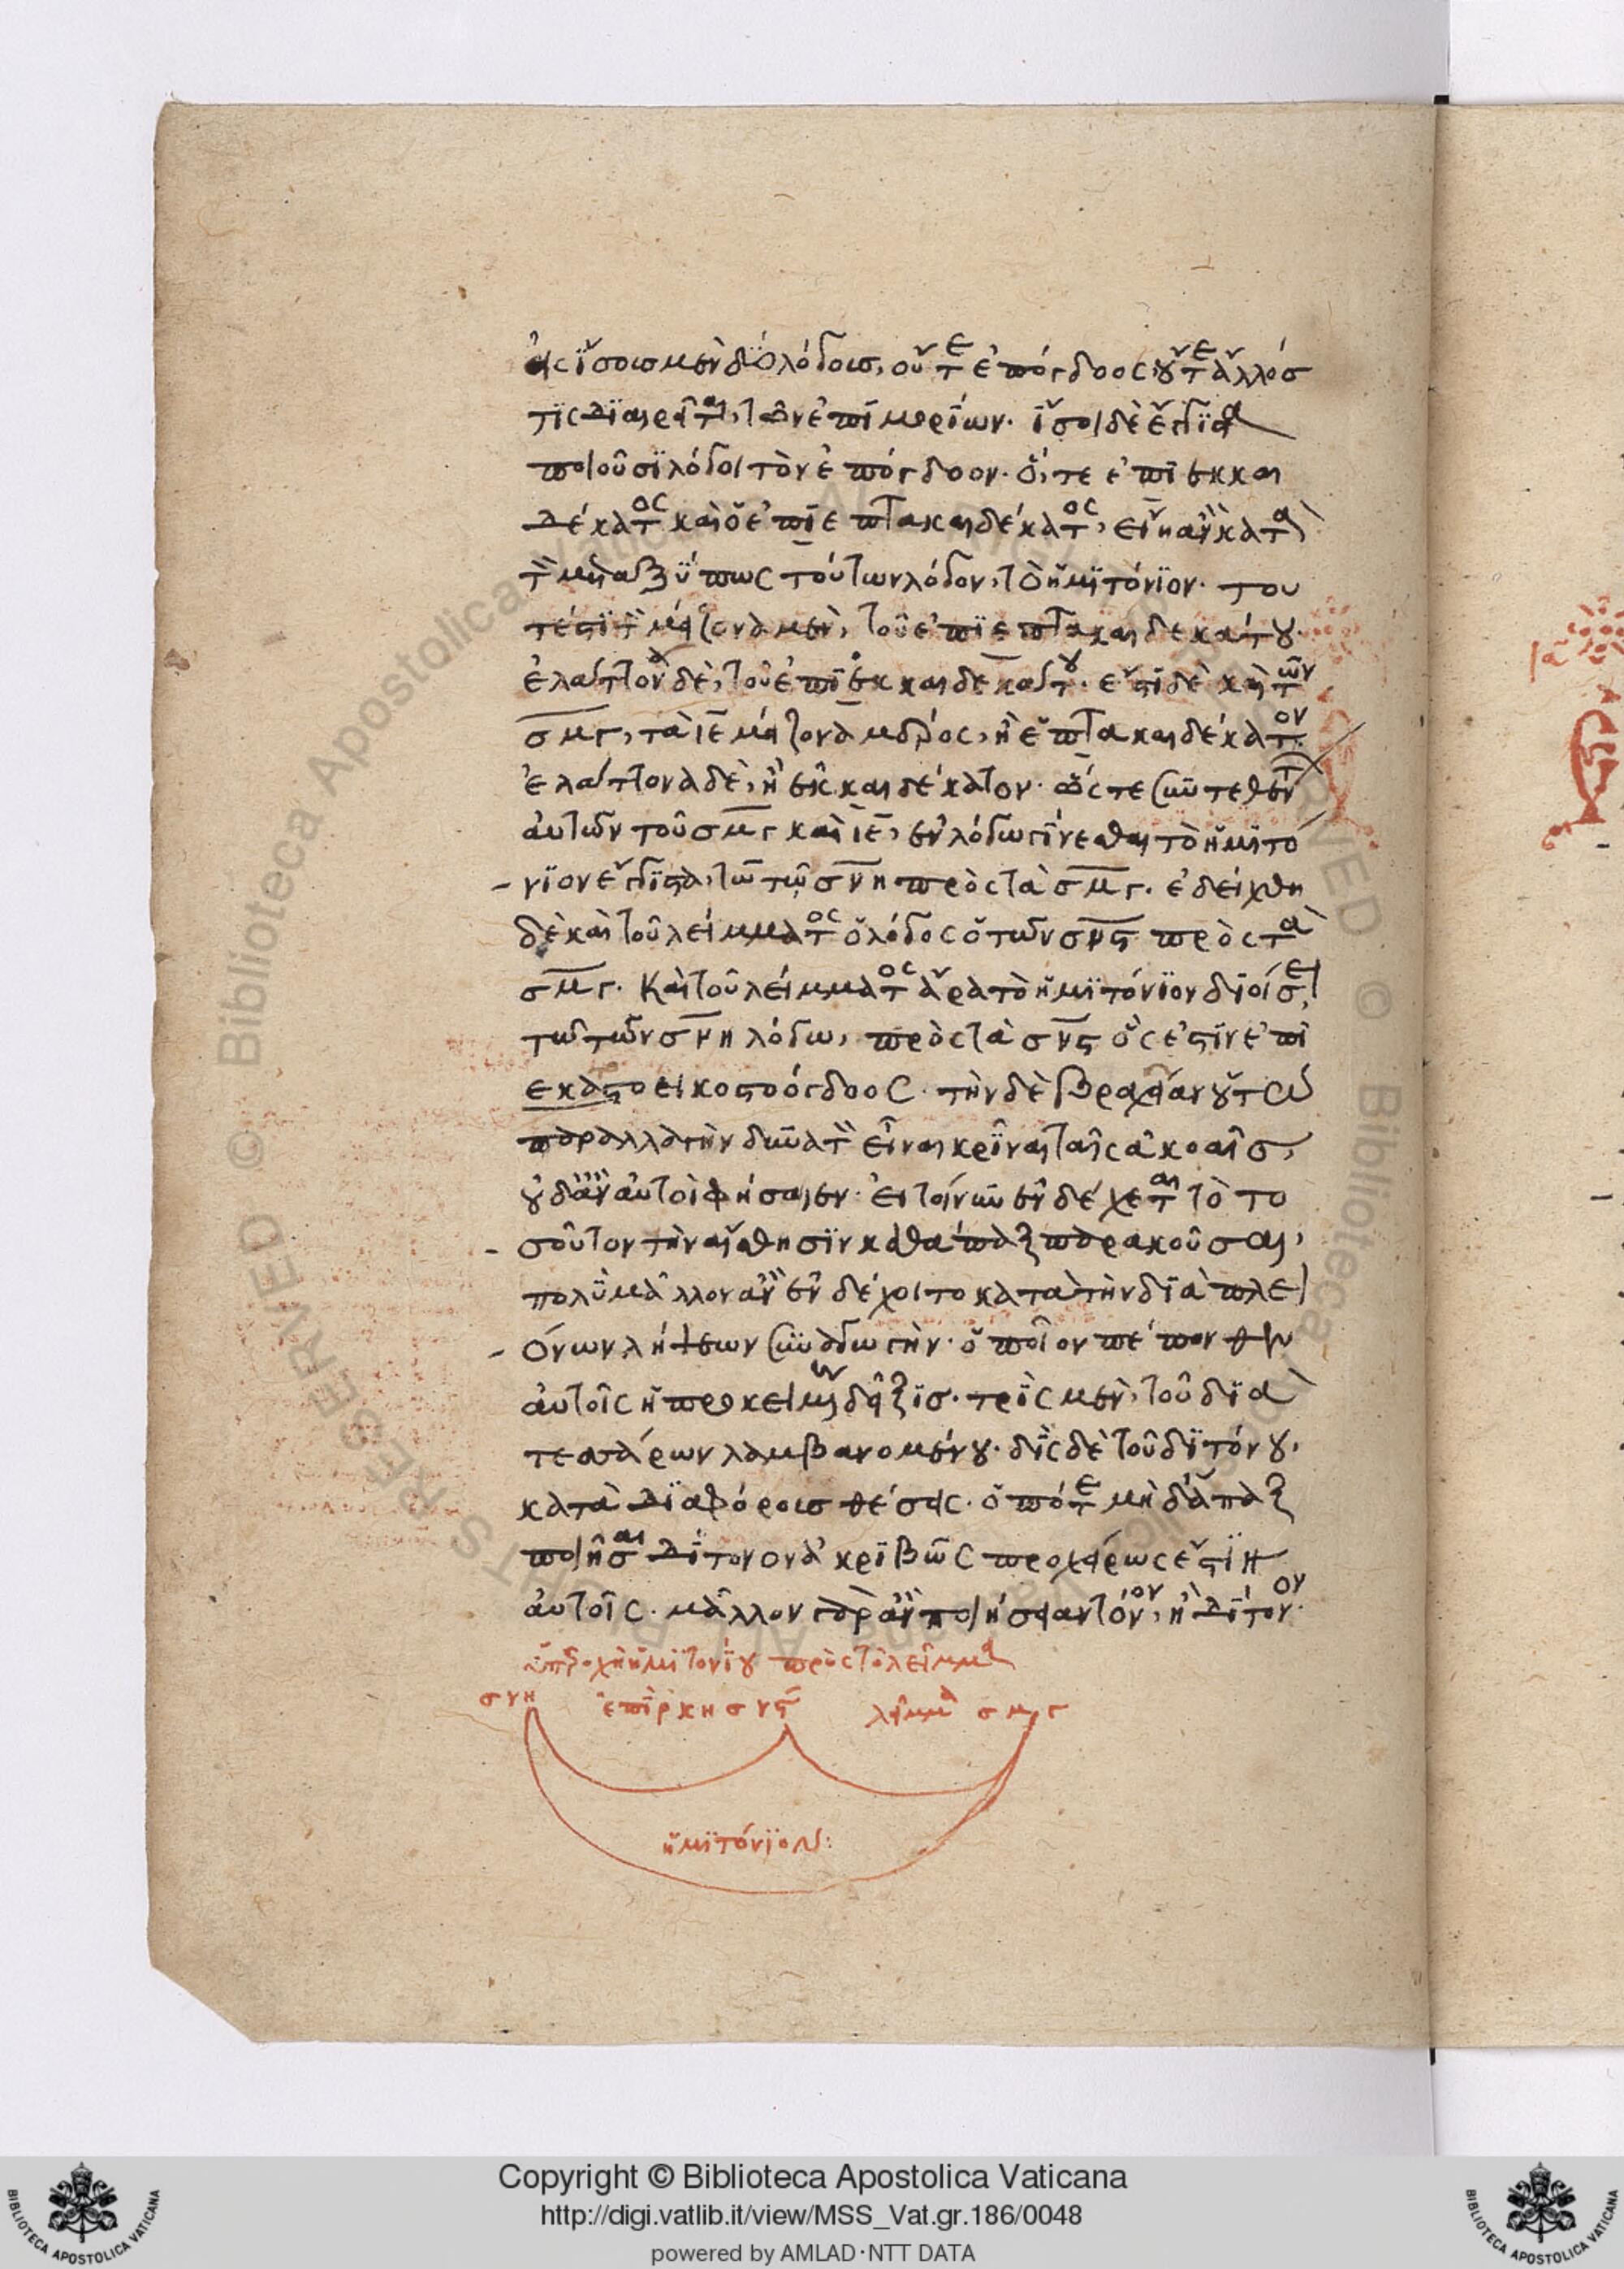 εἰς ἴσους μὲν δύο λόγους, οὔτε ἐπόγδοος, οὔτε ἄλλος
τις διαιρεῖται, τῶν ἐπιμορίων. ἴσοι δὲ ἔγγιστα
ποιοῦσι λόγοι τὸν ἐπόγδοον. ὅ, τε ἐπιεκκαι
δέκατος καὶ ὁ ἐπιεπτακαιδέκατος, εἴη ἂν κατὰ
τὸν μεταξύ πως τούτων λόγον, τὸ ἡμιτόνιον. του
τέστι τὸν μείζονα μὲν, τοῦ ἐπιεπτακαιδεκάτου.
ἐλάττονα δὲ, τοῦ ἐπιεκκαιδεκάτου. ἔστι δὲ καὶ τῶν
σμγ, τὰ ιε μείζονα μέρος, ἢ ἑπτακαιδέκατον.
ἐλάττονα δὲ, ἢ ἑκκαιδέκατον. ὥστε συντεθέντων
αὐτῶν τοῦ σμγ καὶ ιε, ἐν λόγω γίνεσθαι τὸ ἡμιτό
νιον ἔγγιστα, τῶ τῶν σνη πρὸς τὰ σμγ. ἐδείχθη
δὲ καὶ τοῦ λείμματος ὁ λόγος ὁ τῶν σνς πρὸς τὰ
σμγ. καὶ τοῦ λείμματος ἄρα τὸ ἡμιτόνιον διοίσει
τῶ τῶν σνη λόγω, πρὸς τὰ σνς ὅς ἐστιν ἐπι
εκαστοεικοστοόγδοος. τὴν δὲ βραχεῖαν οὕτω
παραλλαγὴν δυνατὸν εἶναι κρῖναι ταῖς ἀκοαῖς,
οὐδ' ἂν αὐτοὶ φήσαιεν. εἰ τοίνυν ἐνδέχεται τὸ το
σοῦτον τὴν αἴσθησιν καθάπαξ παρακοῦσαι,
πολὺ μᾶλλον ἂν ἐνδέχοιτο κατὰ τὴν διὰ πλει
όνων λήψεων συναγωγήν. ὁποῖον πέπονθεν
αὐτοῖς ἡ προκειμένη δεῖξις. τρὶς μὲν, τοῦ διὰ
τεσσάρων λαμβανομένου. δὶς δὲ τοῦ διτόνου,
κατὰ διαφόρους θέσεις. ὁπότε μηδ' ἅπαξ
ποιῆσαι δίτονον ἀκριβῶς προχείρως ἔστιν
αὐτοῖς. μᾶλλον γὰρ ἂν ποιήσειαν τόνον, ἢ δίτονον.
ὑπεροχὴ ἡμιτονίου πρὸς τὸ λεῖμμα
σνη ἐπὶ ρκη σνς λεῖμμα σμγ
ἡμιτόνιον:
Copyright © Biblioteca Apostolica Vaticana
http://digi.vatlib.it/view/MSS_Vat.gr.186/0048
powered by AMLAD·NTT DATA